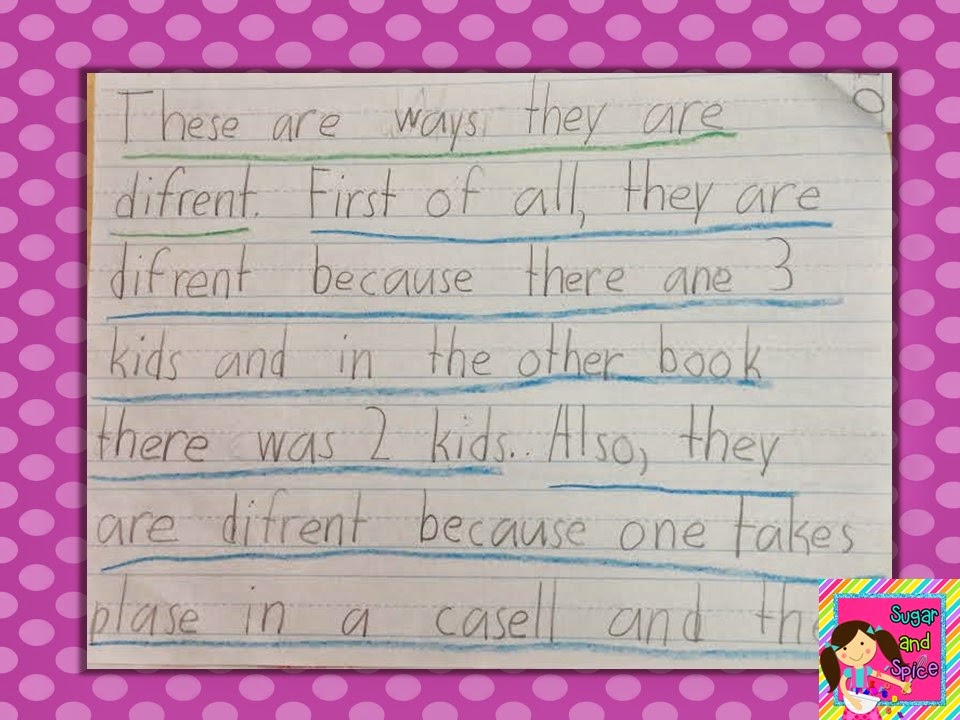 These are ways they are
difrent. First of all, they are
difrent because there are 3
kids and in the other book
there was 2 kids.. Also, they
are difrent because one takes
plase in a casell and
Sugar
and
Spice